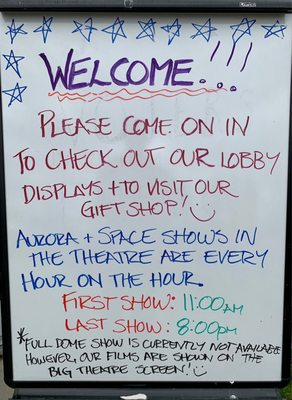 WELCOME...!!!
PLEASE COME ON IN
TO CHECK OUT OUR LOBBY
DISPLAYS + TO VISIT OUR
GIFT SHOP!
AURORA + SPACE SHOWS IN
THE THEATRE ARE EVERY
HOUR ON THE HOUR.
FIRST SHOW: 11:00AM
LAST SHOW: 8:00pm
*FULL DOME SHOW IS CURRENTLY NOT AVAILABLE
HOWEVER, OUR FILMS ARE SHOWN ON THE
BIG THEATRE SCREEN!